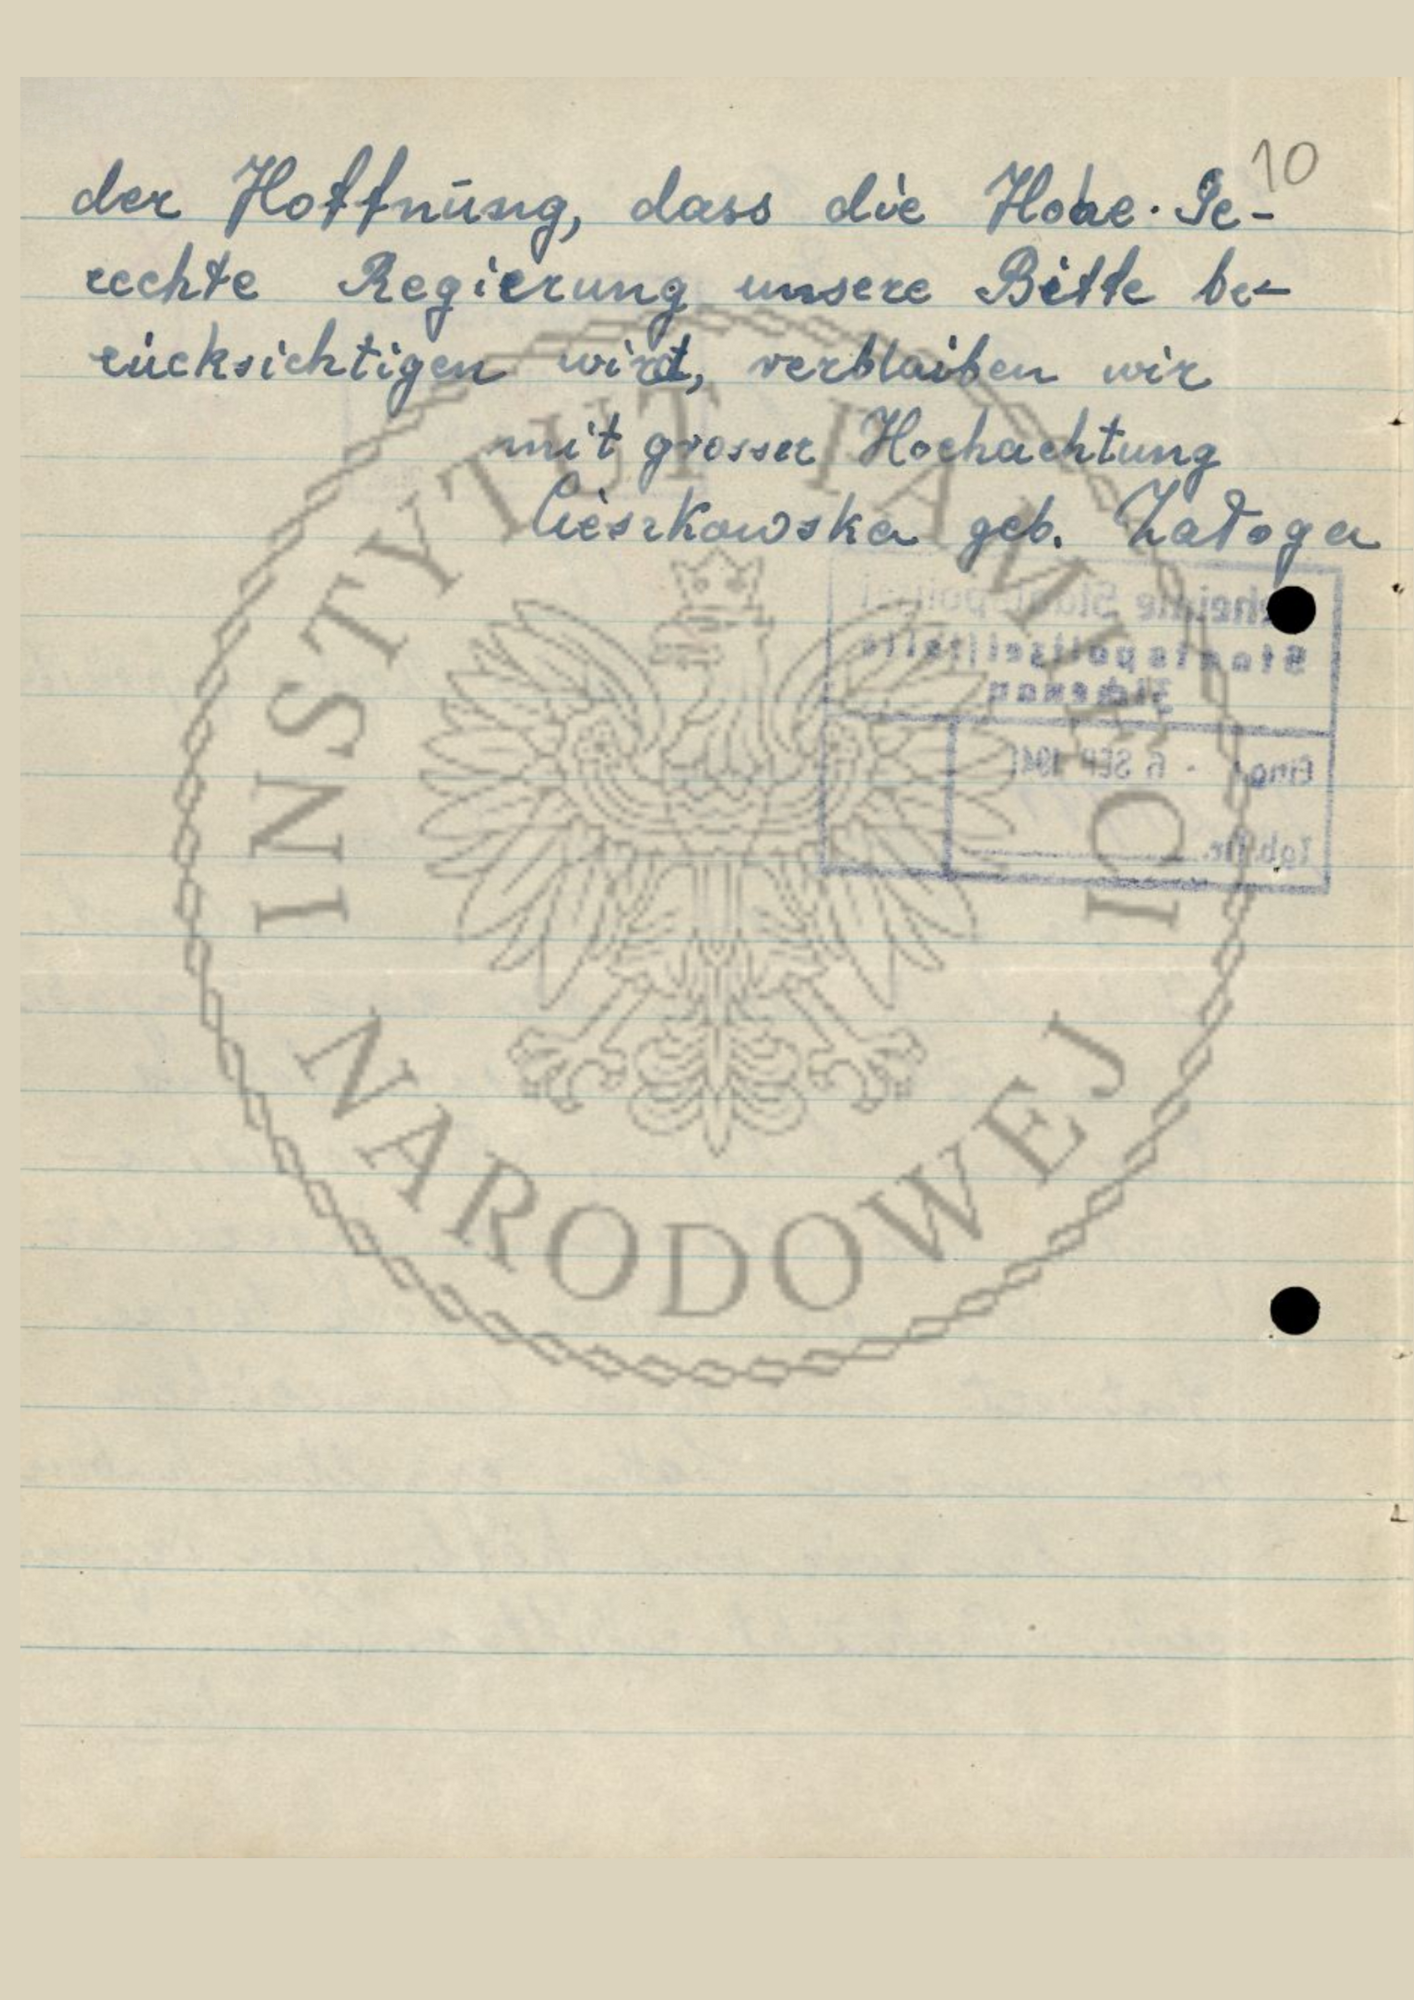 10
der Hoffnung, dass die Hohe. Ge-
rechte Regierung unsere Bitte be-
rücksichtigen wird, verblaiben wir
mit grosser Hochachtung
Cieszkowska geb. Załoga
Geheime Staatspolizei
Staatspolizeistelle
Zichenau
Eing. - 6 SEP 1941
Tgb. Nr.
INSTYTUT PAMIĘCI
NARODOWEJ